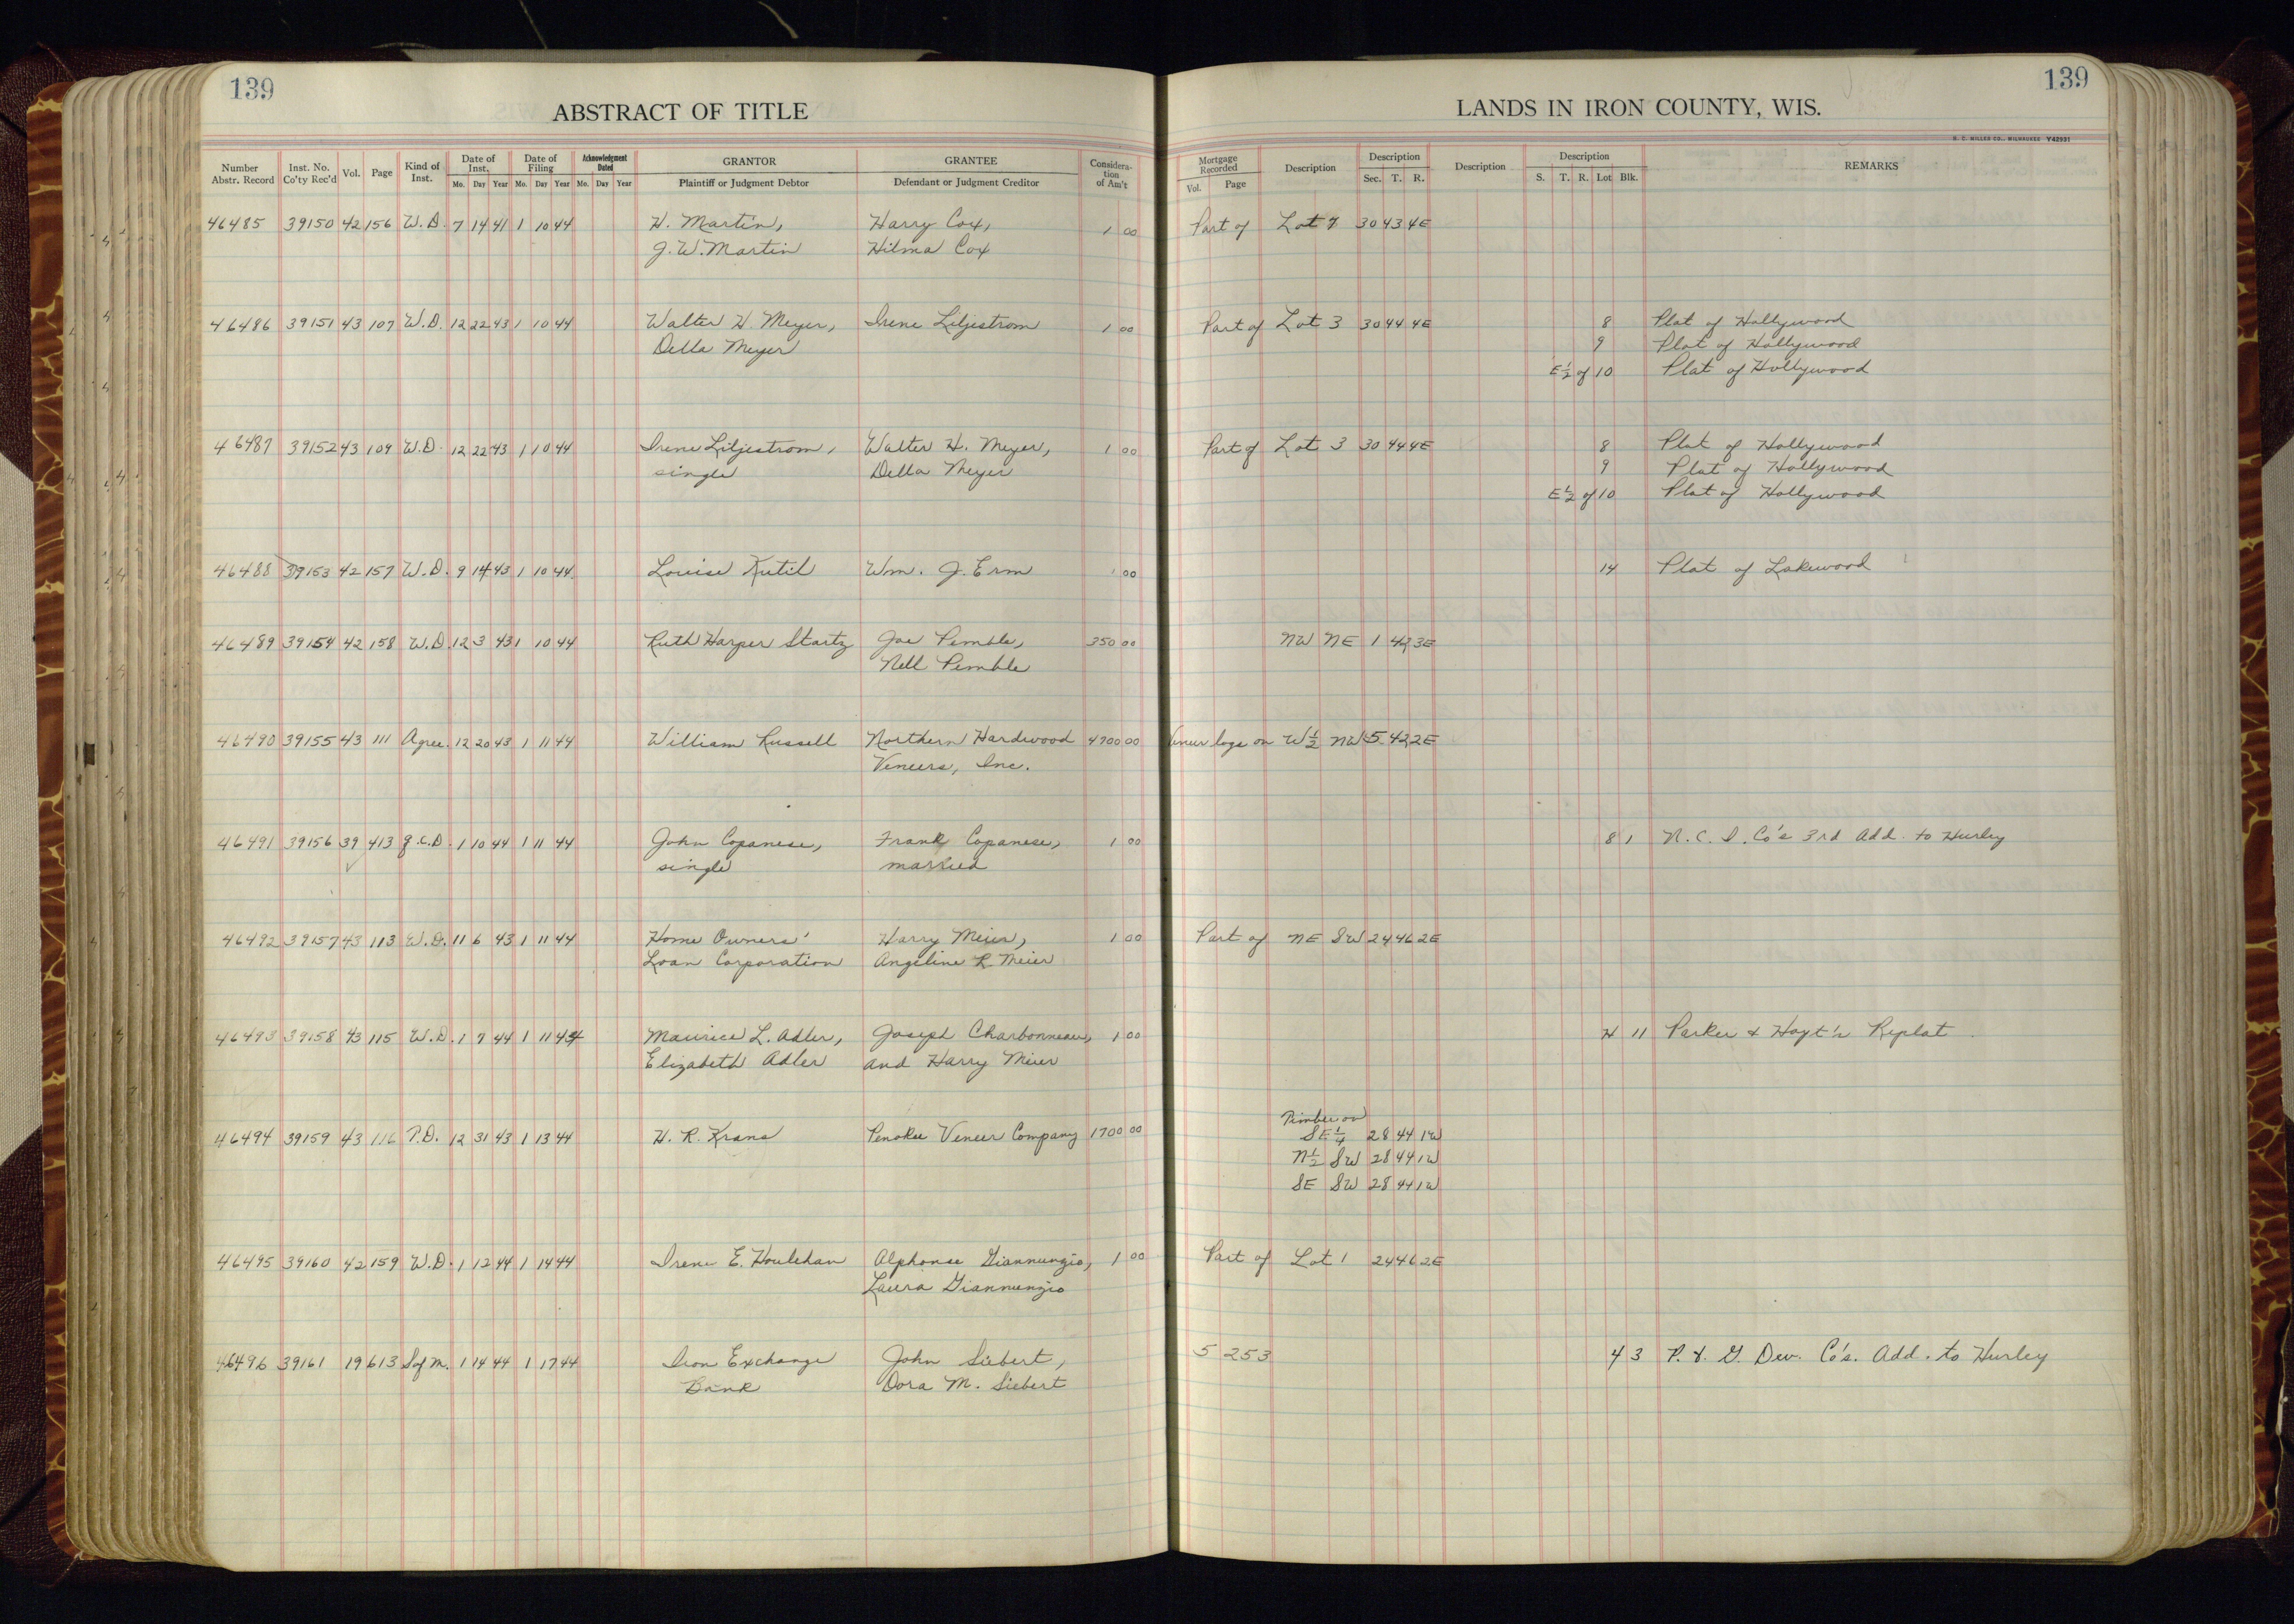 139
139
ABSTRACT OF TITLE
LANDS IN IRON COUNTY, WIS.
Number Abstr. Record Inst. No. Co'ty Rec'd Vol. Page Kind of Inst. Date of Inst. Mo. Day Year Date of Filing Mo. Day Year Acknowledgment Dated Mo. Day Year GRANTOR Plaintiff or Judgment Debtor GRANTEE Defendant or Judgment Creditor Considera-tion of Am't Mortgage Recorded Vol. Page Description Description Sec. T. R. Description Description S. T. R. Lot Blk. REMARKS
46485 39150 42 156 W.D. 7 14 41 1 10 44 H. Martin, Harry Cox, 1 00 Part of Lot 7 30 43 4E
J. W. Martin Hilma Cox
46486 39151 43 107 W.D. 12 22 43 1 10 44 Walter H. Meyer, Irene Liljestrom 1 00 Part of Lot 3 30 44 4E 8 Plat of Hollywood
Della Meyer 9 Plat of Hollywood
E½ of 10 Plat of Hollywood
46487 39152 43 109 W.D. 12 22 43 1 10 44 Irene Liljestrom, Walter H. Meyer, 1 00 Part of Lot 3 30 44 4E 8 Plat of Hollywood
single Della Meyer 9 Plat of Hollywood
E½ of 10 Plat of Hollywood
46488 39153 42 157 W.D. 9 14 43 1 10 44 Louise Kutil Wm. J. Erm 1 00 14 Plat of Lakewood
46489 39154 42 158 W.D. 12 3 43 1 10 44 Ruth Harper Startz Joe Pemble, 350 00 NW NE 1 42 3E
Nell Pemble
46490 39155 43 111 Agree. 12 20 43 1 11 44 William Russell Northern Hardwood 4700 00 Veneer logs on W½ NW 5 42 2E
Veneers, Inc.
46491 39156 39 413 Q.C.D. 1 10 44 1 11 44 John Copanese, Frank Copanese, 1 00 8 1 N. C. I. Co's 3rd Add. to Hurley
single married
46492 39157 43 113 W.D. 11 6 43 1 11 44 Home Owners' Harry Meier, 1 00 Part of NE SW 24 46 2E
Loan Corporation Angeline R. Meier
46493 39158 43 115 W.D. 1 7 44 1 11 44 Maurice L. Adler, Joseph Charbonneau, 1 00 H 11 Parker & Hoyt's Replat.
Elizabeth Adler and Harry Meier
Timber on
46494 39159 43 116 T.D. 12 31 43 1 13 44 H. R. Krans Penokee Veneer Company 1700 00 SE¼ 28 44 1W
N½ SW 28 44 1W
SE SW 28 44 1W
46495 39160 42 159 W.D. 1 12 44 1 14 44 Irene E. Houlehan Alphonse Giannunzio, 1 00 Part of Lot 1 24 46 2E
Laura Giannunzio
46496 39161 19 613 S of M. 1 14 44 1 17 44 Iron Exchange John Siebert, 5 253 4 3 P. & G. Dev. Co's. Add. to Hurley
Bank Dora M. Siebert